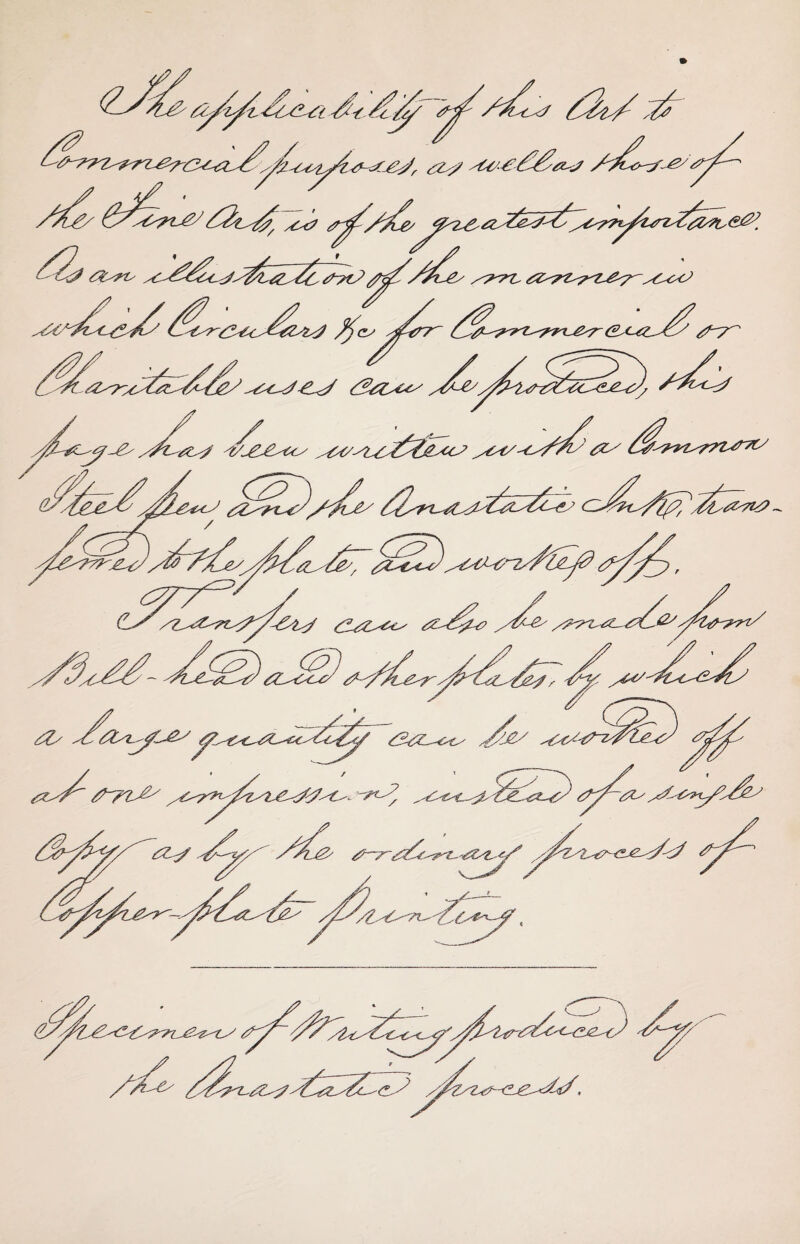 The applicability of this Art to
Commercial purposes, as well as those of
the Fine Arts, is of the greatest importance.
As an illustration of the manner in
which Circulars &c for Commercial or
Charitable uses can be produced, this
page has been written with a Common
Steel pen, and the Anastatic Ink, trans-
ferred to the plate, and worked off.
Transfers can also be made from
Bill-head and other plates, by which
a large quantity can be worked off
at one impression, instead of a single
Copy as by the ordinary process of
Copper-plate Printing.
Specimen of Writing produced by
the Anastatic process.